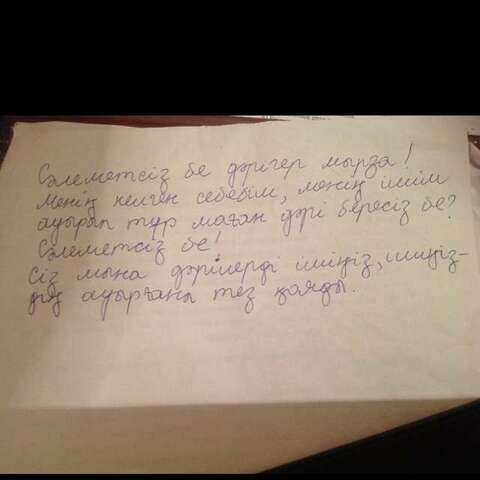 Сәлеметсіз бе дәрігер мырза!
Менің келген себебім, менің ішім
ауырып тұр маған дәрі бересіз бе?
Сәлеметсіз бе!
Сіз мына дәрілерді ішіңіз, ішіңіз-
дің ауырғаны тез қояды.